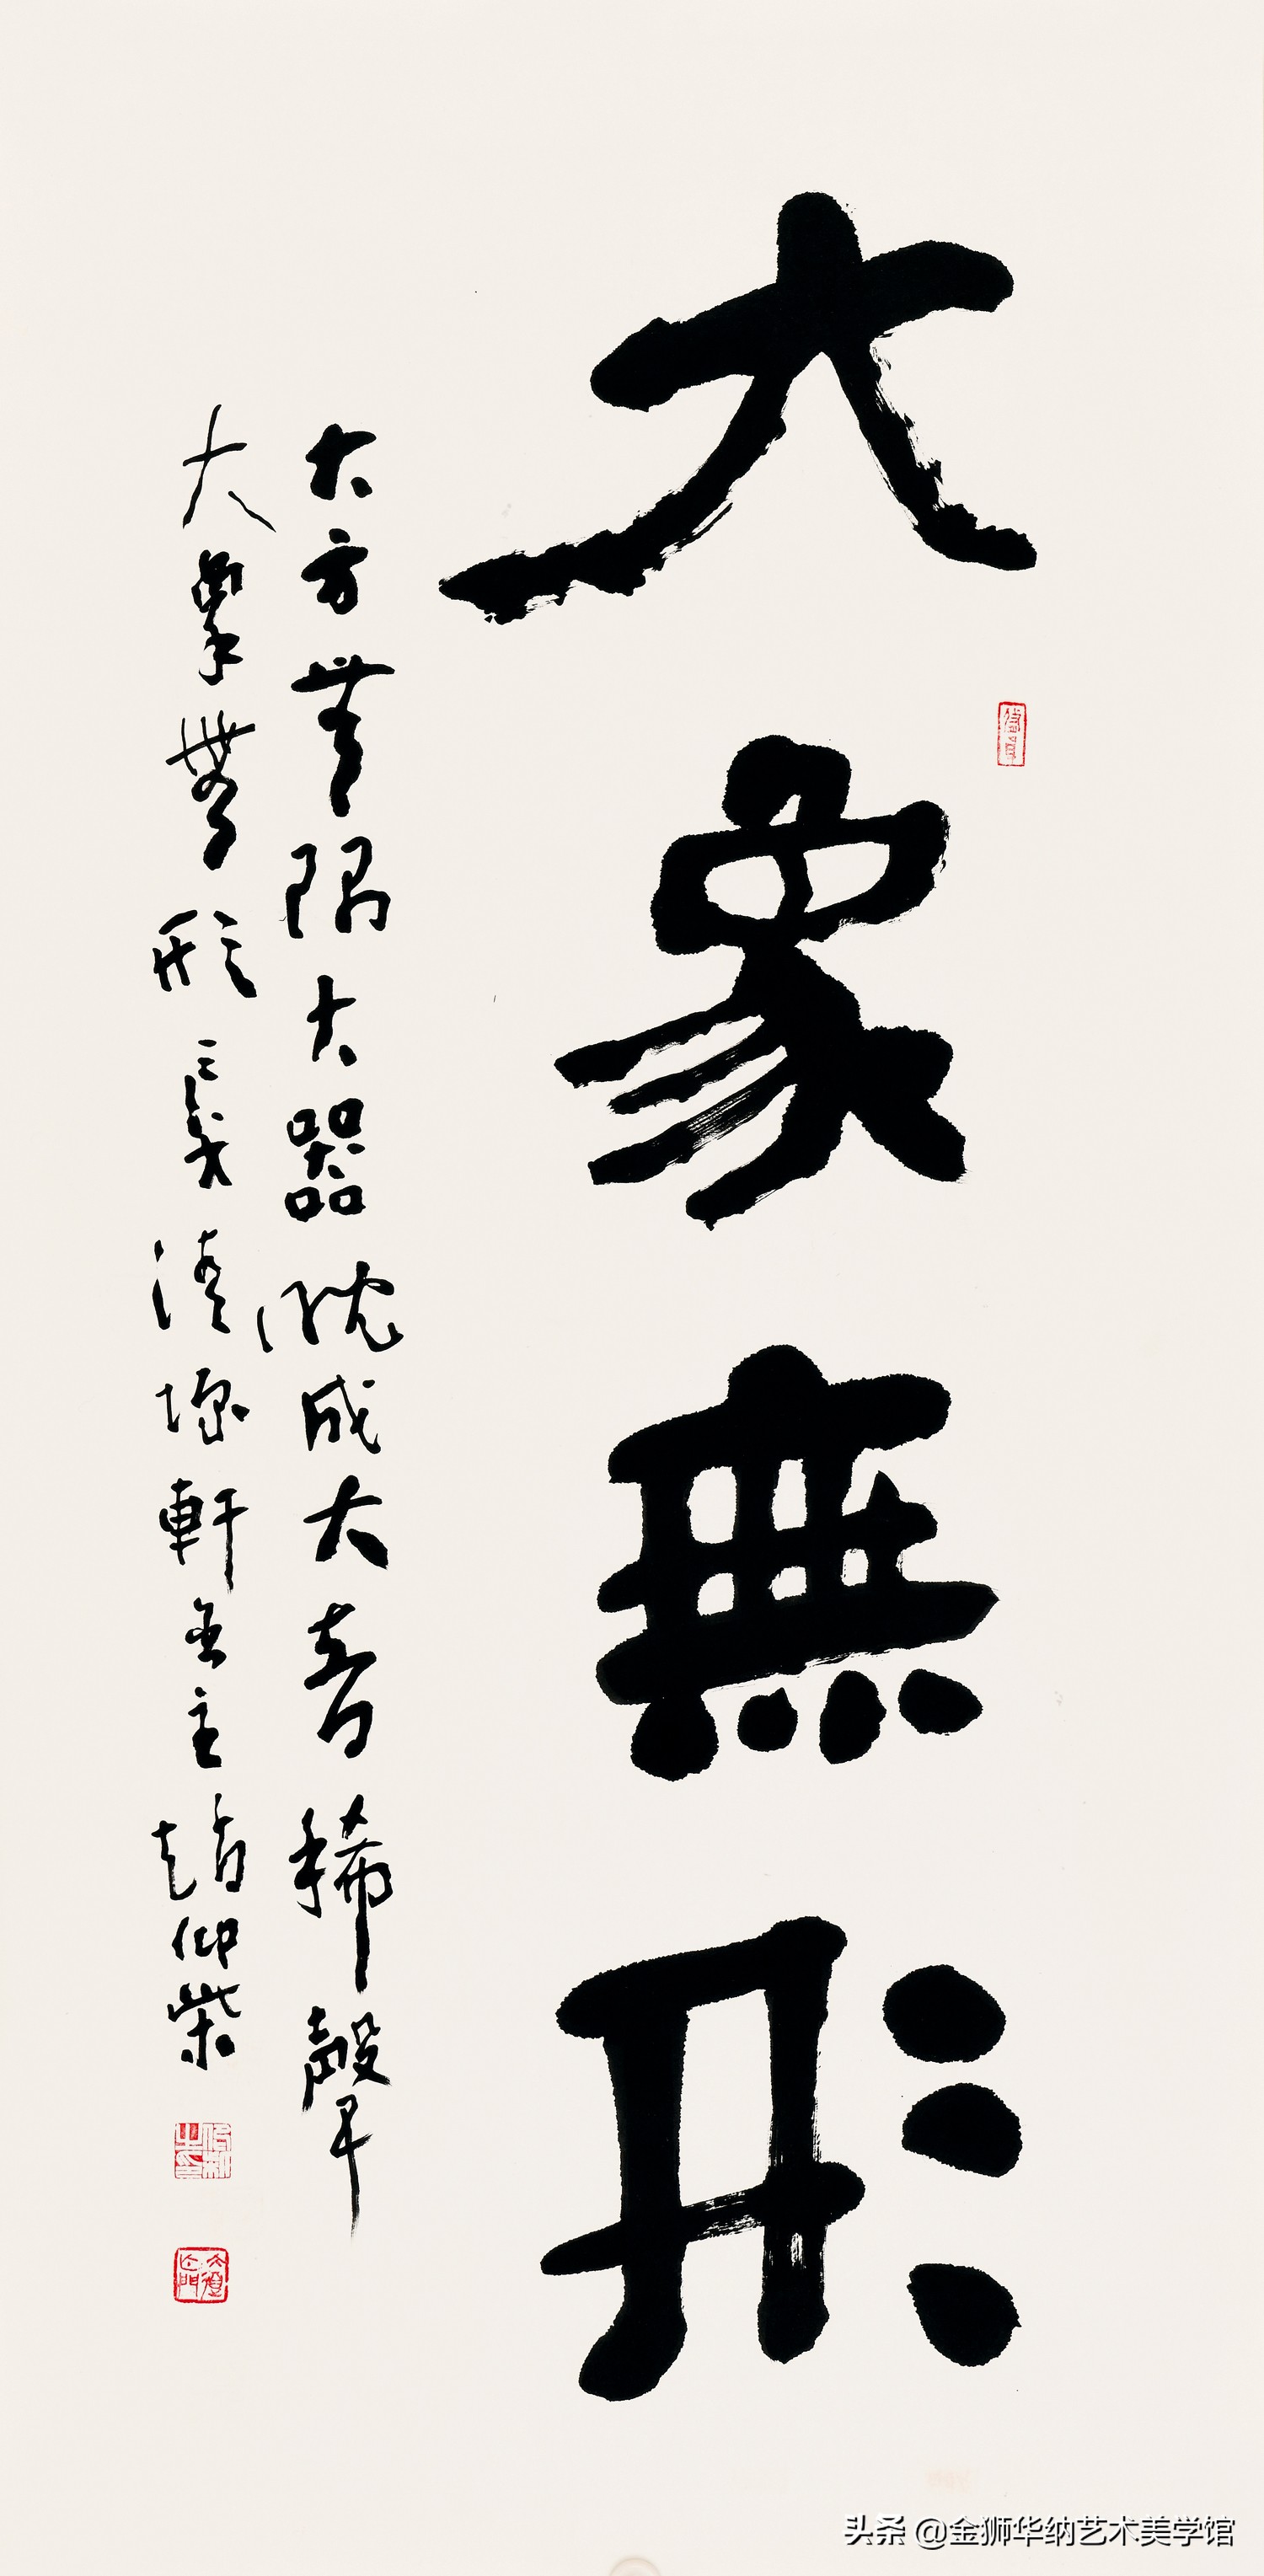 大象無形
大方無隅大器晚成大音稀聲
大象無形
軒
主趙仰柴
头条 @金狮华纳艺术美学馆